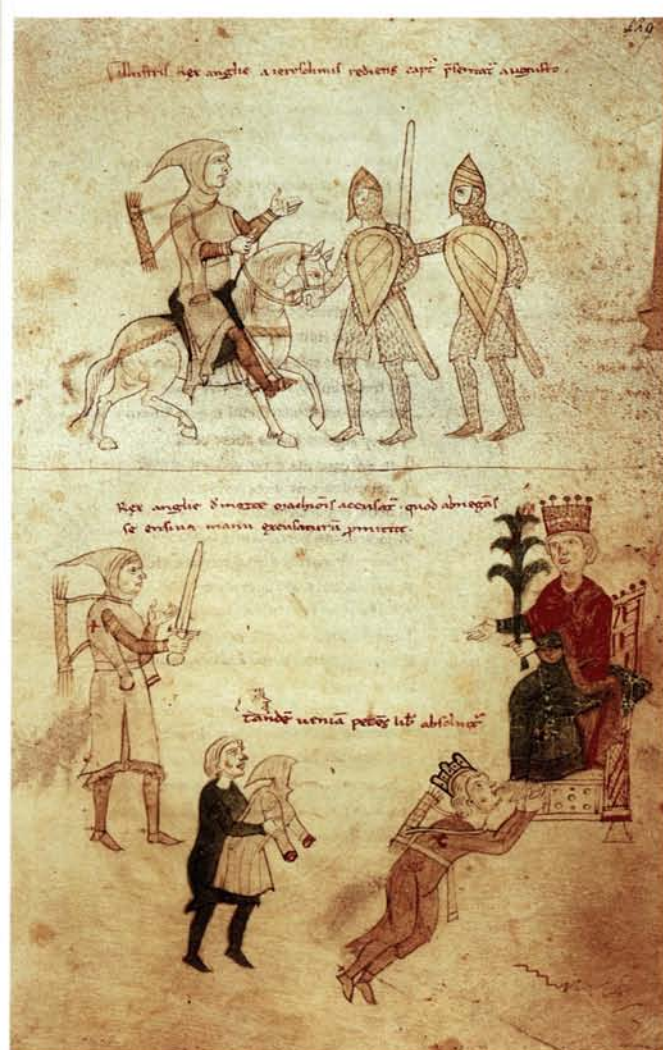 129
Illustris Rex anglie a ierosolimis rediens capt' p̄sentat' augusto.
Rex anglie d' morte marchiōis accusat'. quod abnegās
se ensiua manu excusaturū p̄mittit.
Tandē ueniā petēs lib' absoluit'